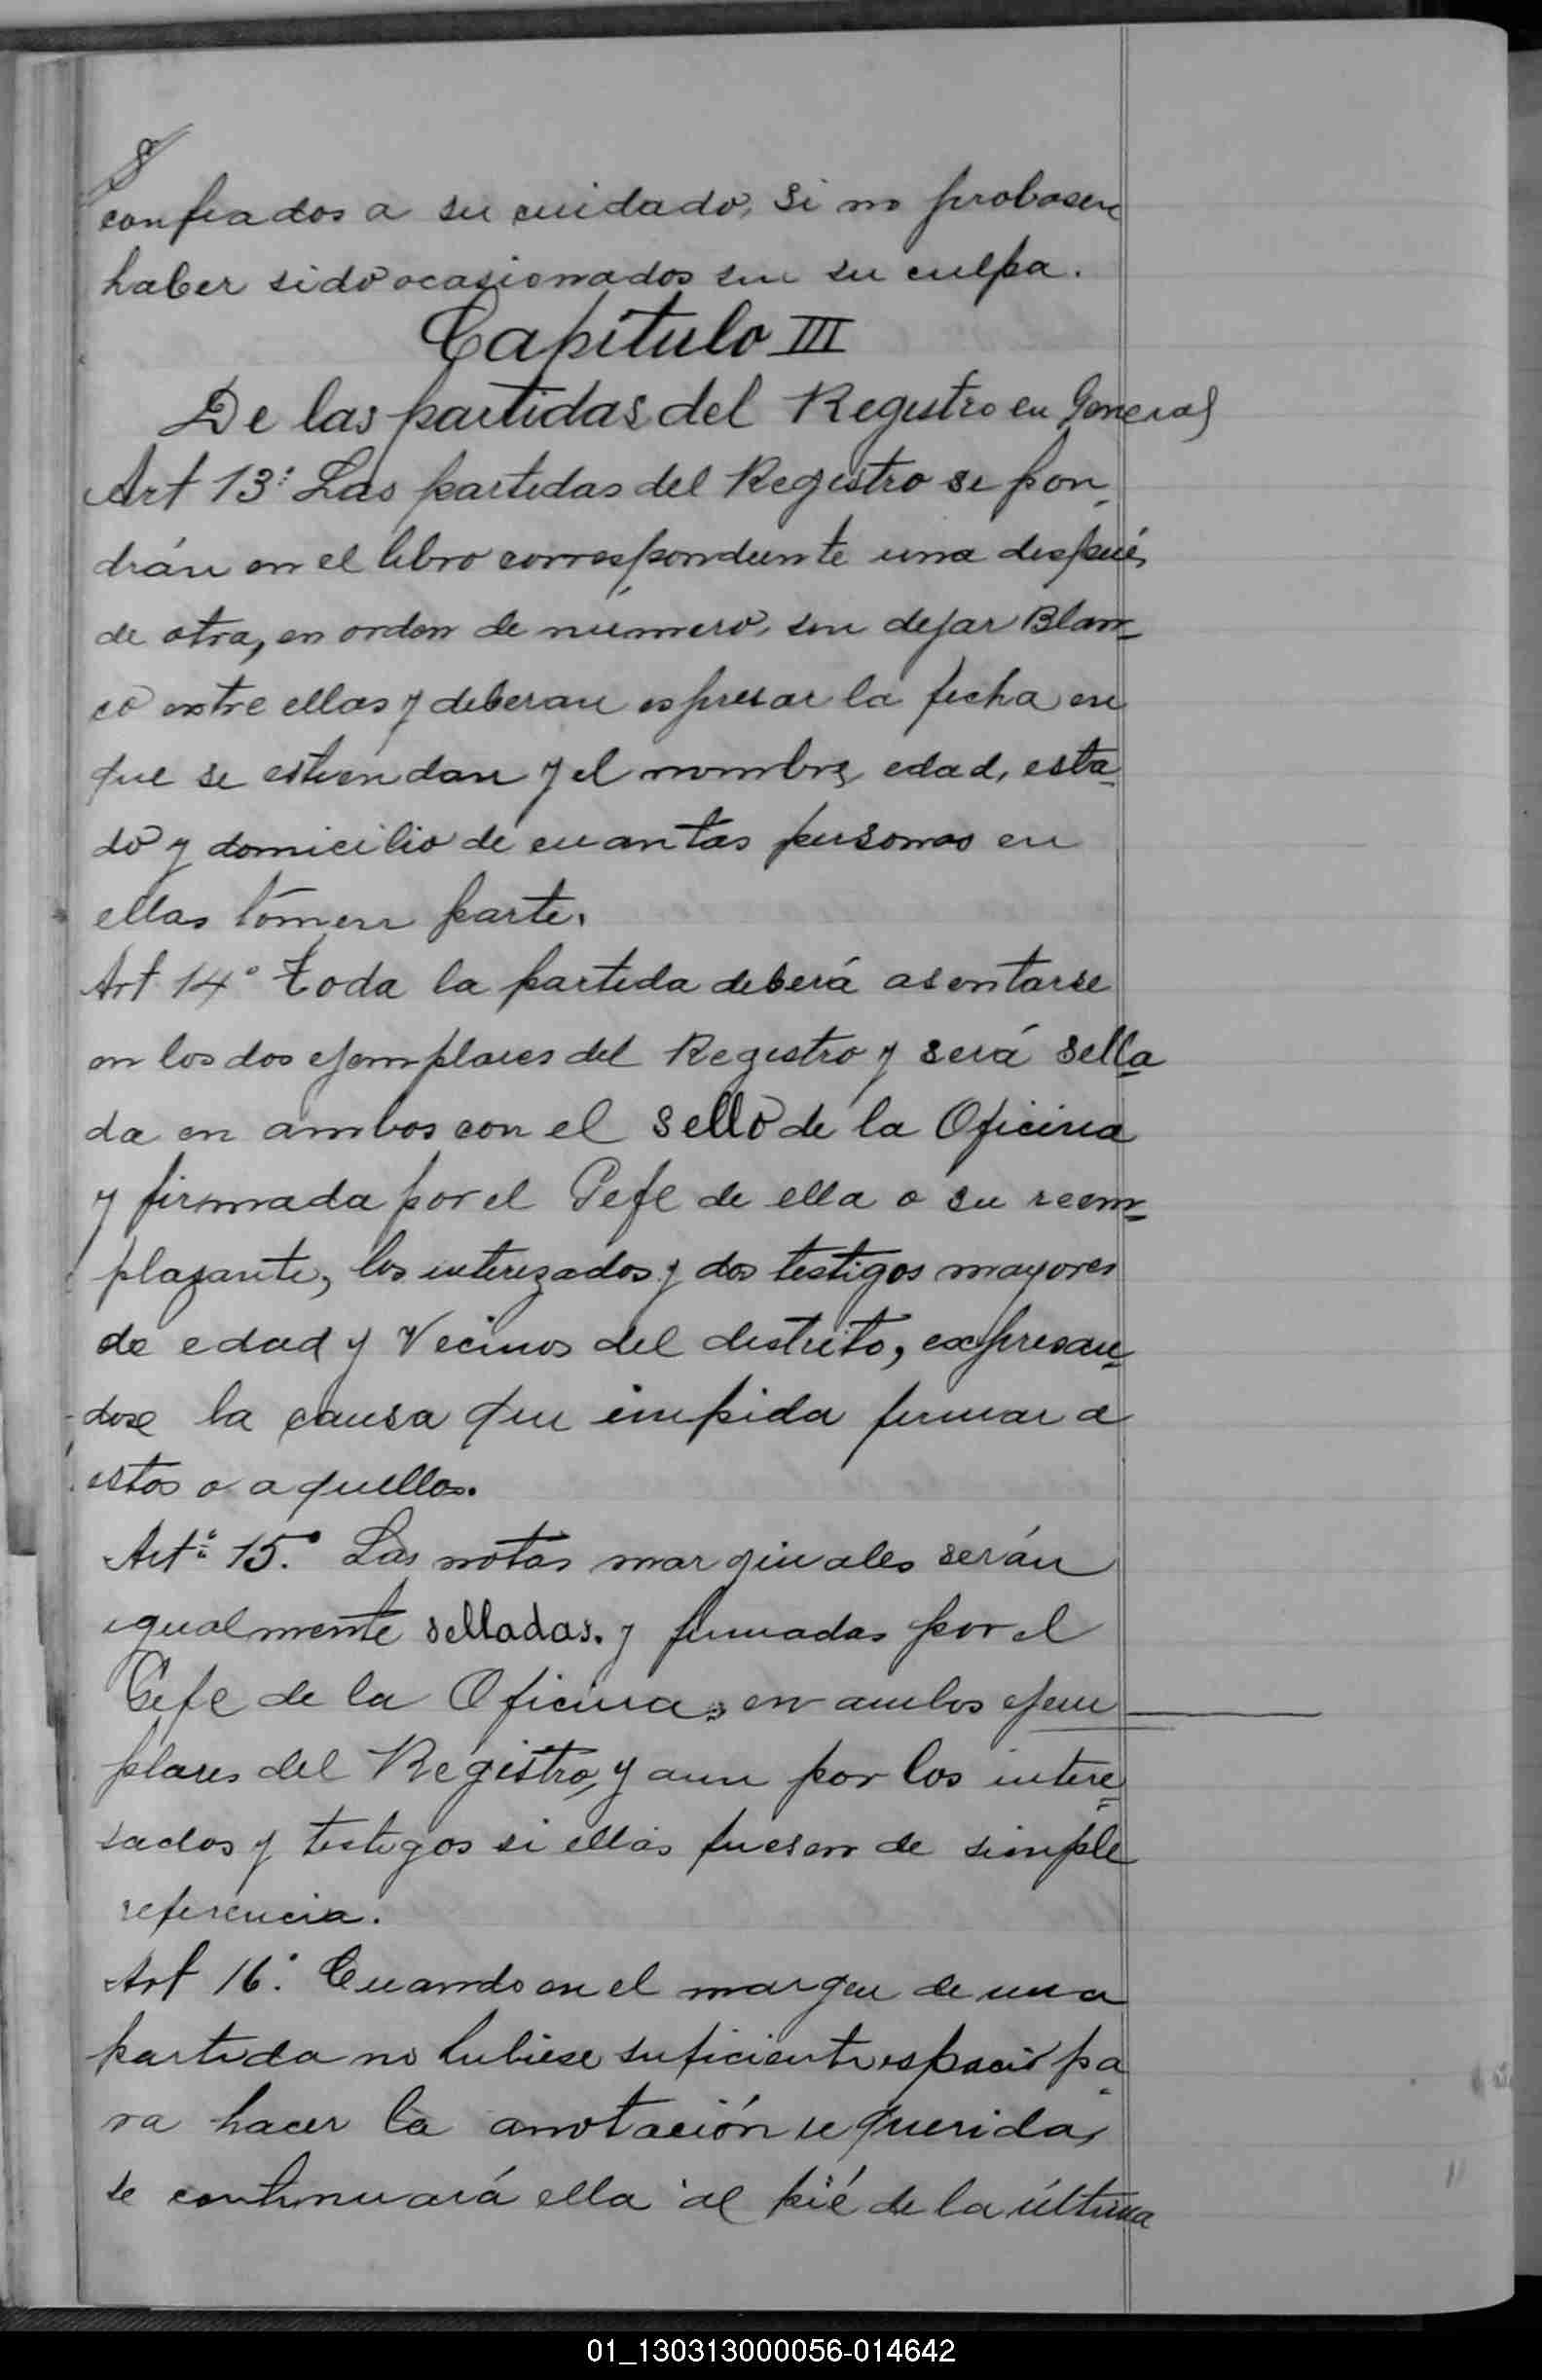 8
confiados a su cuidado, si no probasen
haber sido ocasionados sin su culpa.
Capítulo III
De las partidas del Registro en General
Art 13º Las partidas del Registro se pon-
drán en el libro correspondiente una después
de otra, en orden de número, sin dejar Blan-
co entre ellas y deberan espresar la fecha en
que se estiendan y el nombre, edad, esta-
do y domicilio de cuantas personas en
ellas tomen parte.
Art 14º Toda la partida deberá asentarse
en los dos ejemplares del Registro y será sella-
da en ambos con el sello de la Oficina
y firmada por el Gefe de ella o su reem-
plazante, los interezados y dos testigos mayores
de edad y Vecinos del distrito, expresan-
dose la causa que impida firmar a
estos o a aquellos.
Artº 15º Las notas marginales serán
igualmente selladas. y firmadas por el
Gefe de la Oficina, en ambos ejem
plares del Registro, y aun por los intere-
sados y testigos si ellas fuesen de simple
referencia.
Art 16º Cuando en el margen de una
partida no hubiese suficiente espacio pa-
ra hacer la anotación requerida,
se continuará ella al pié de la última
01_130313000056-014642